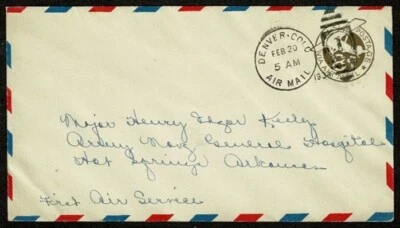 DENVER·COLO
FEB 20
5 AM
AIR MAIL
POSTAGE
Major Henry Edgar
Army Navy General Hospital
Hot Springs Arkansas
First Air Service